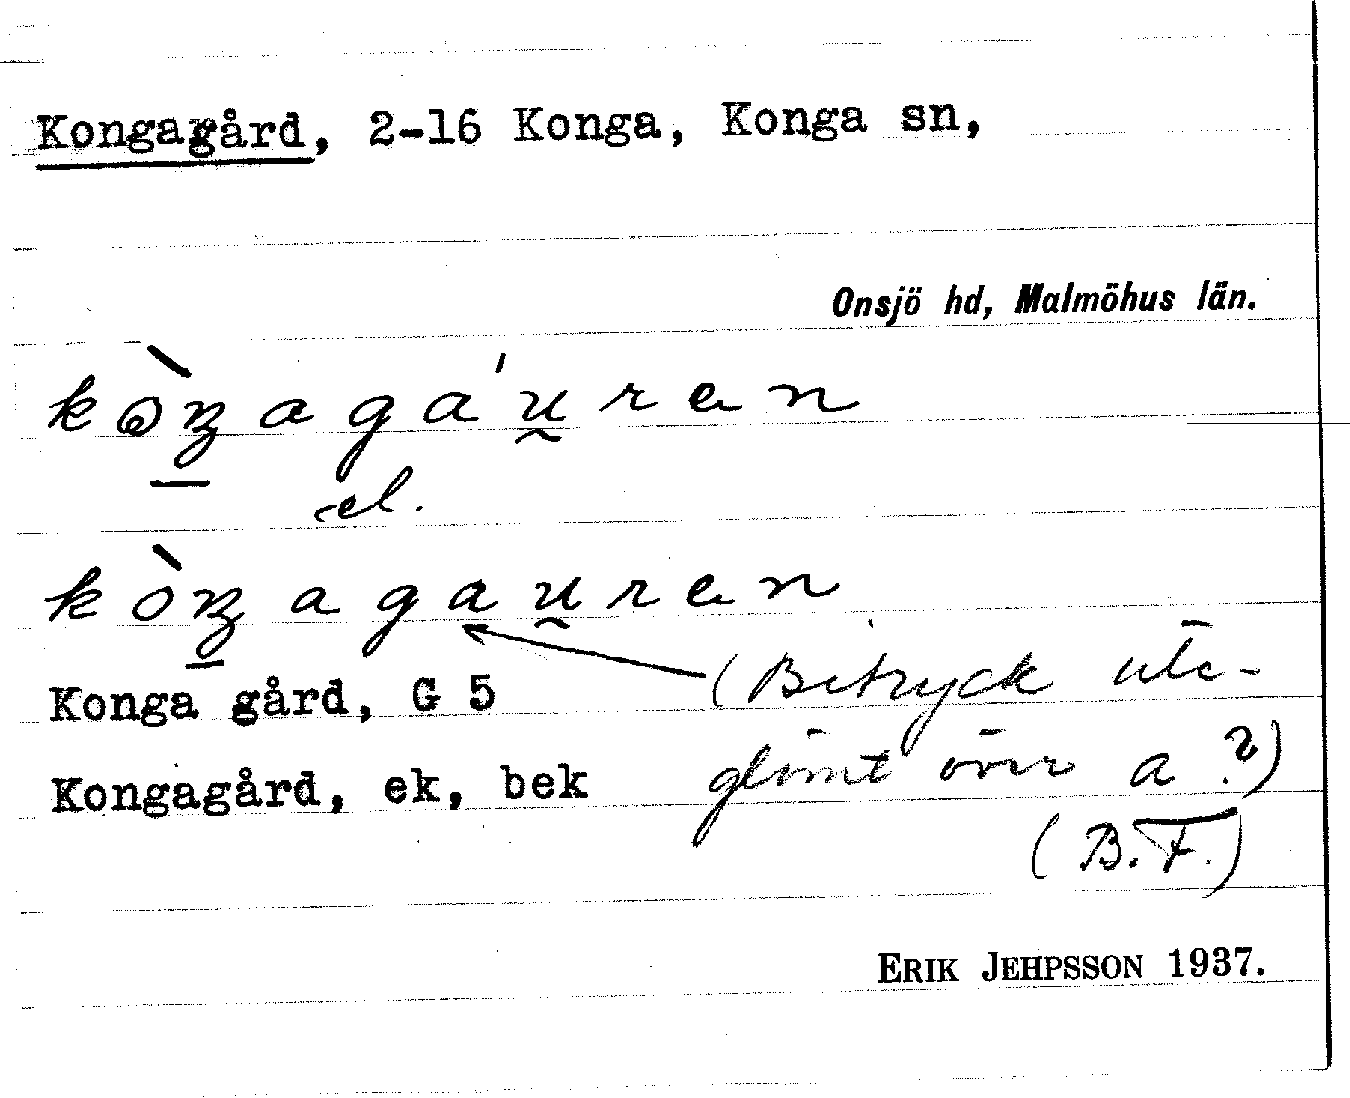 Kongagård, 2-16 Konga, Konga sn,
Onsjö hd, Malmöhus län.
el.
Konga gård, G 5
(Bitryck ute-
Kongagård, ek, bek
glömt över a ?)
(B.F.)
ERIK JEHPSSON 1937.